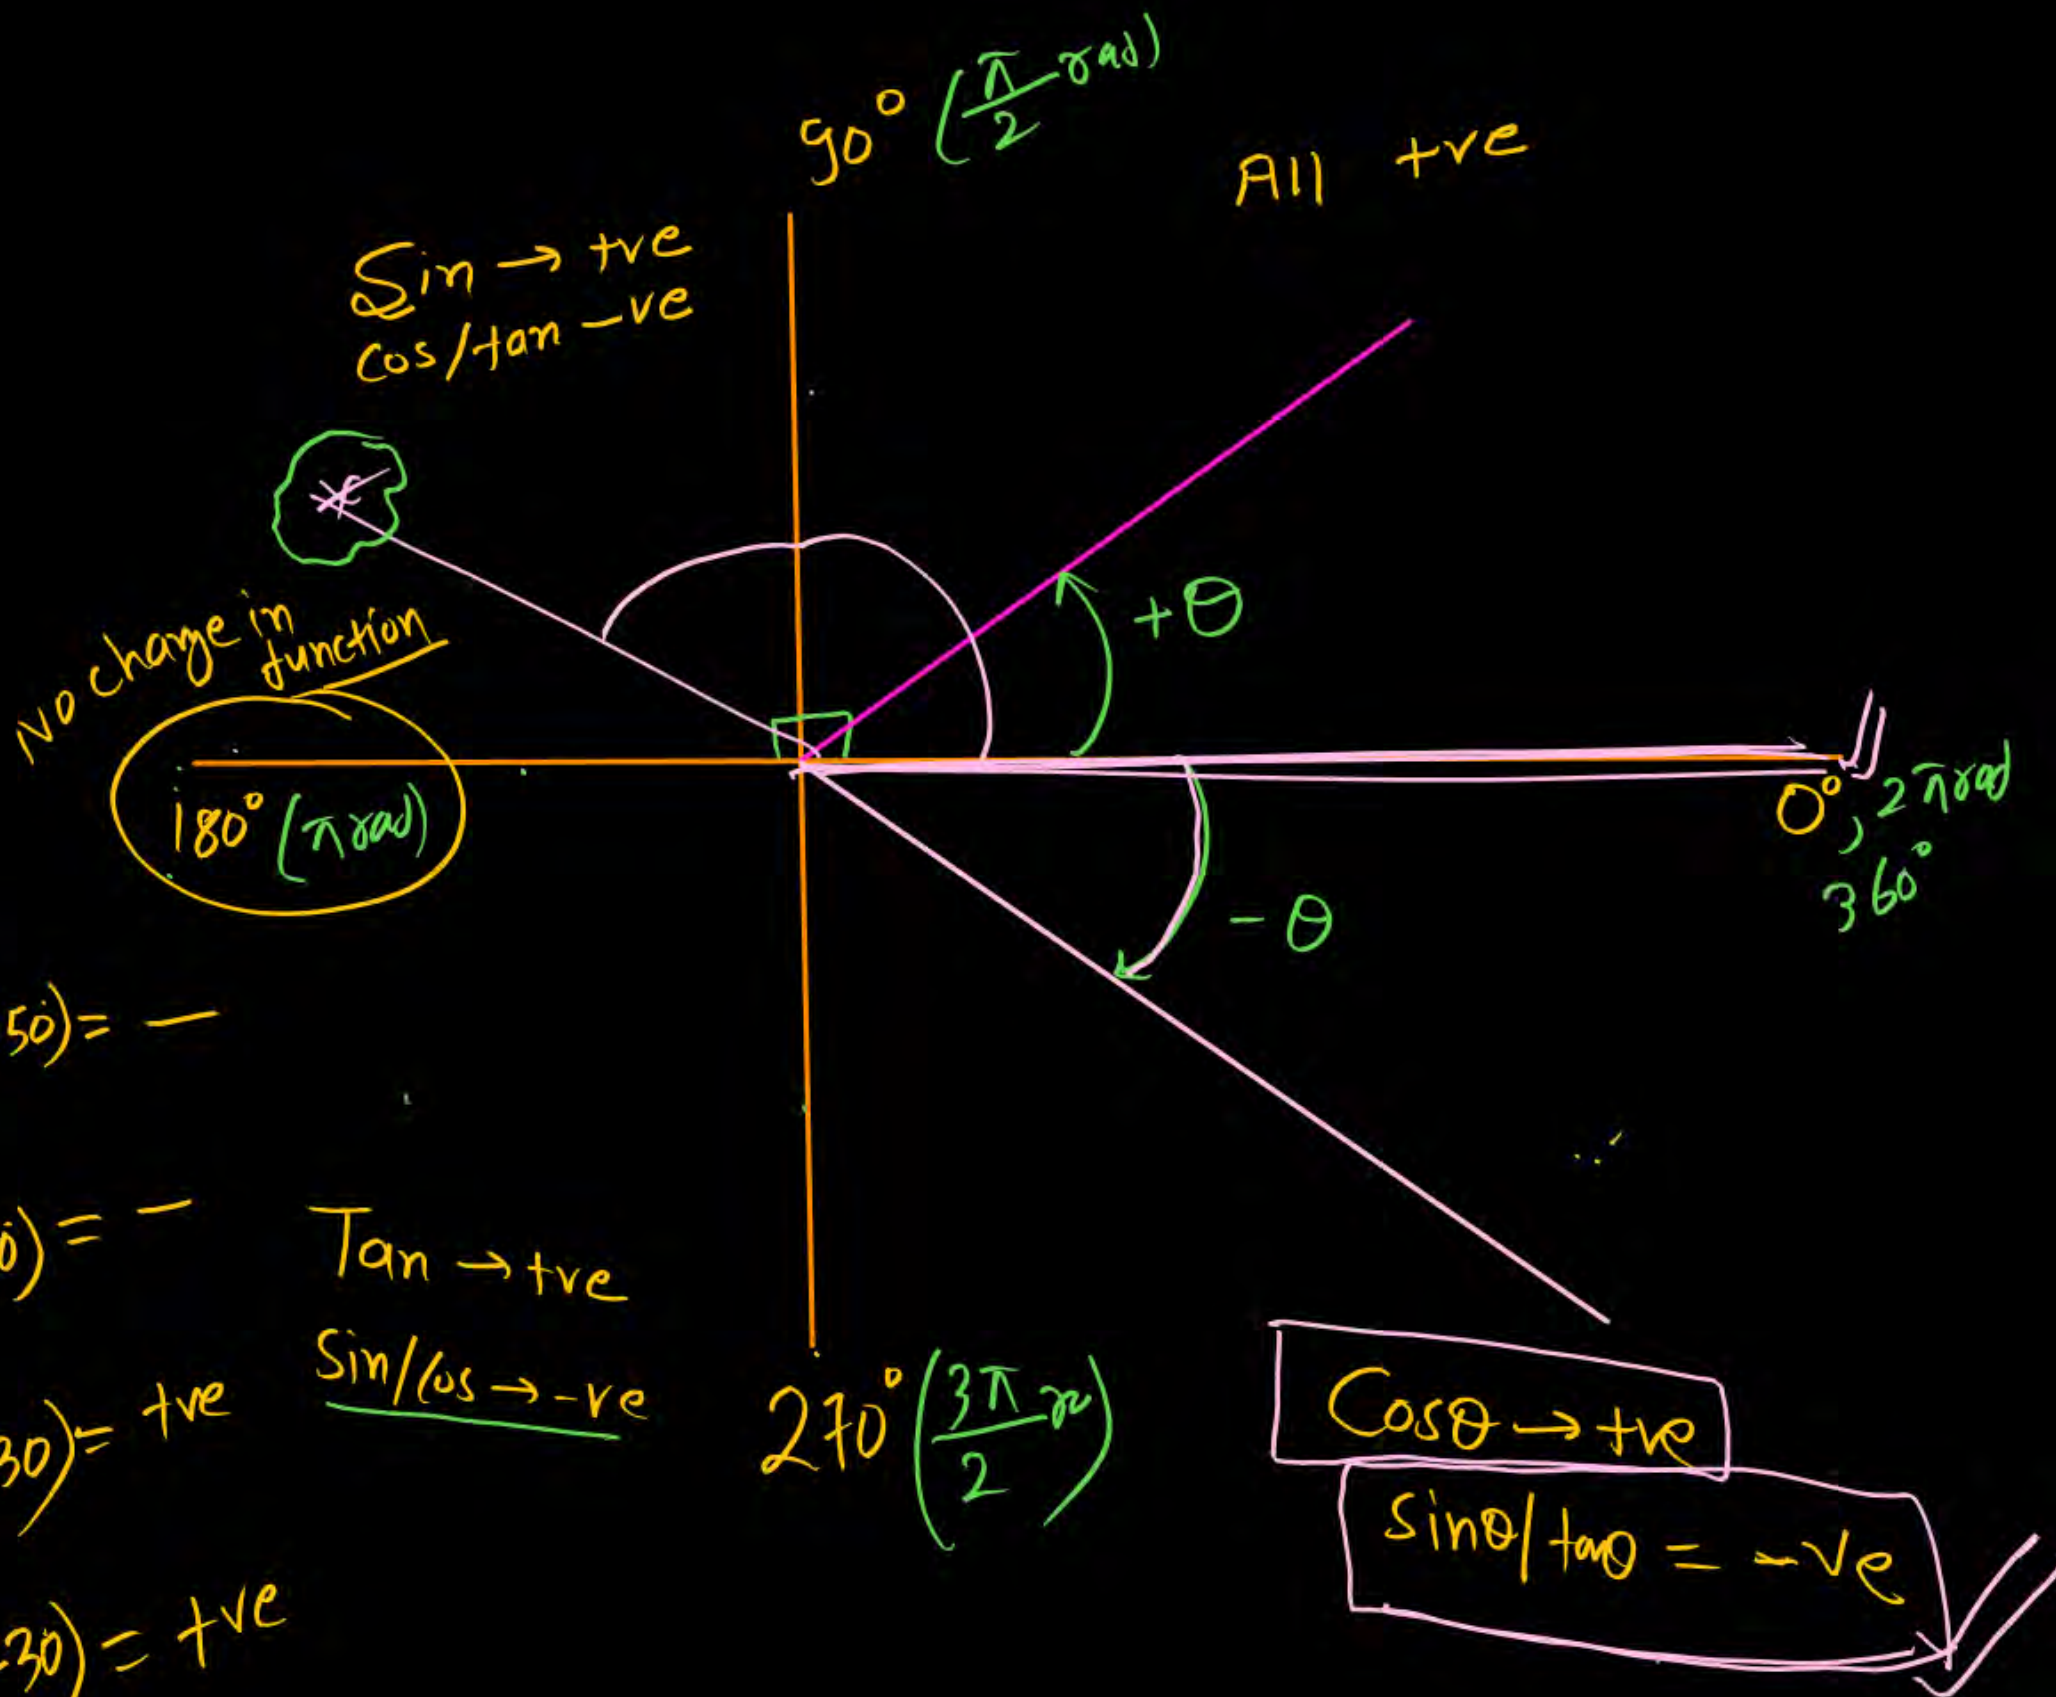 90° (π/2 rad)
All +ve
Sin → +ve
cos/tan -ve
+θ
No change in
function
180° (π rad)
0°, 2π rad
360°
-θ
50) = —
0) = —
Tan → +ve
Sin/Cos → -ve
30) = +ve
270° (3π/2 r)
Cosθ → +ve
sinθ/tanθ = -ve
-30) = +ve